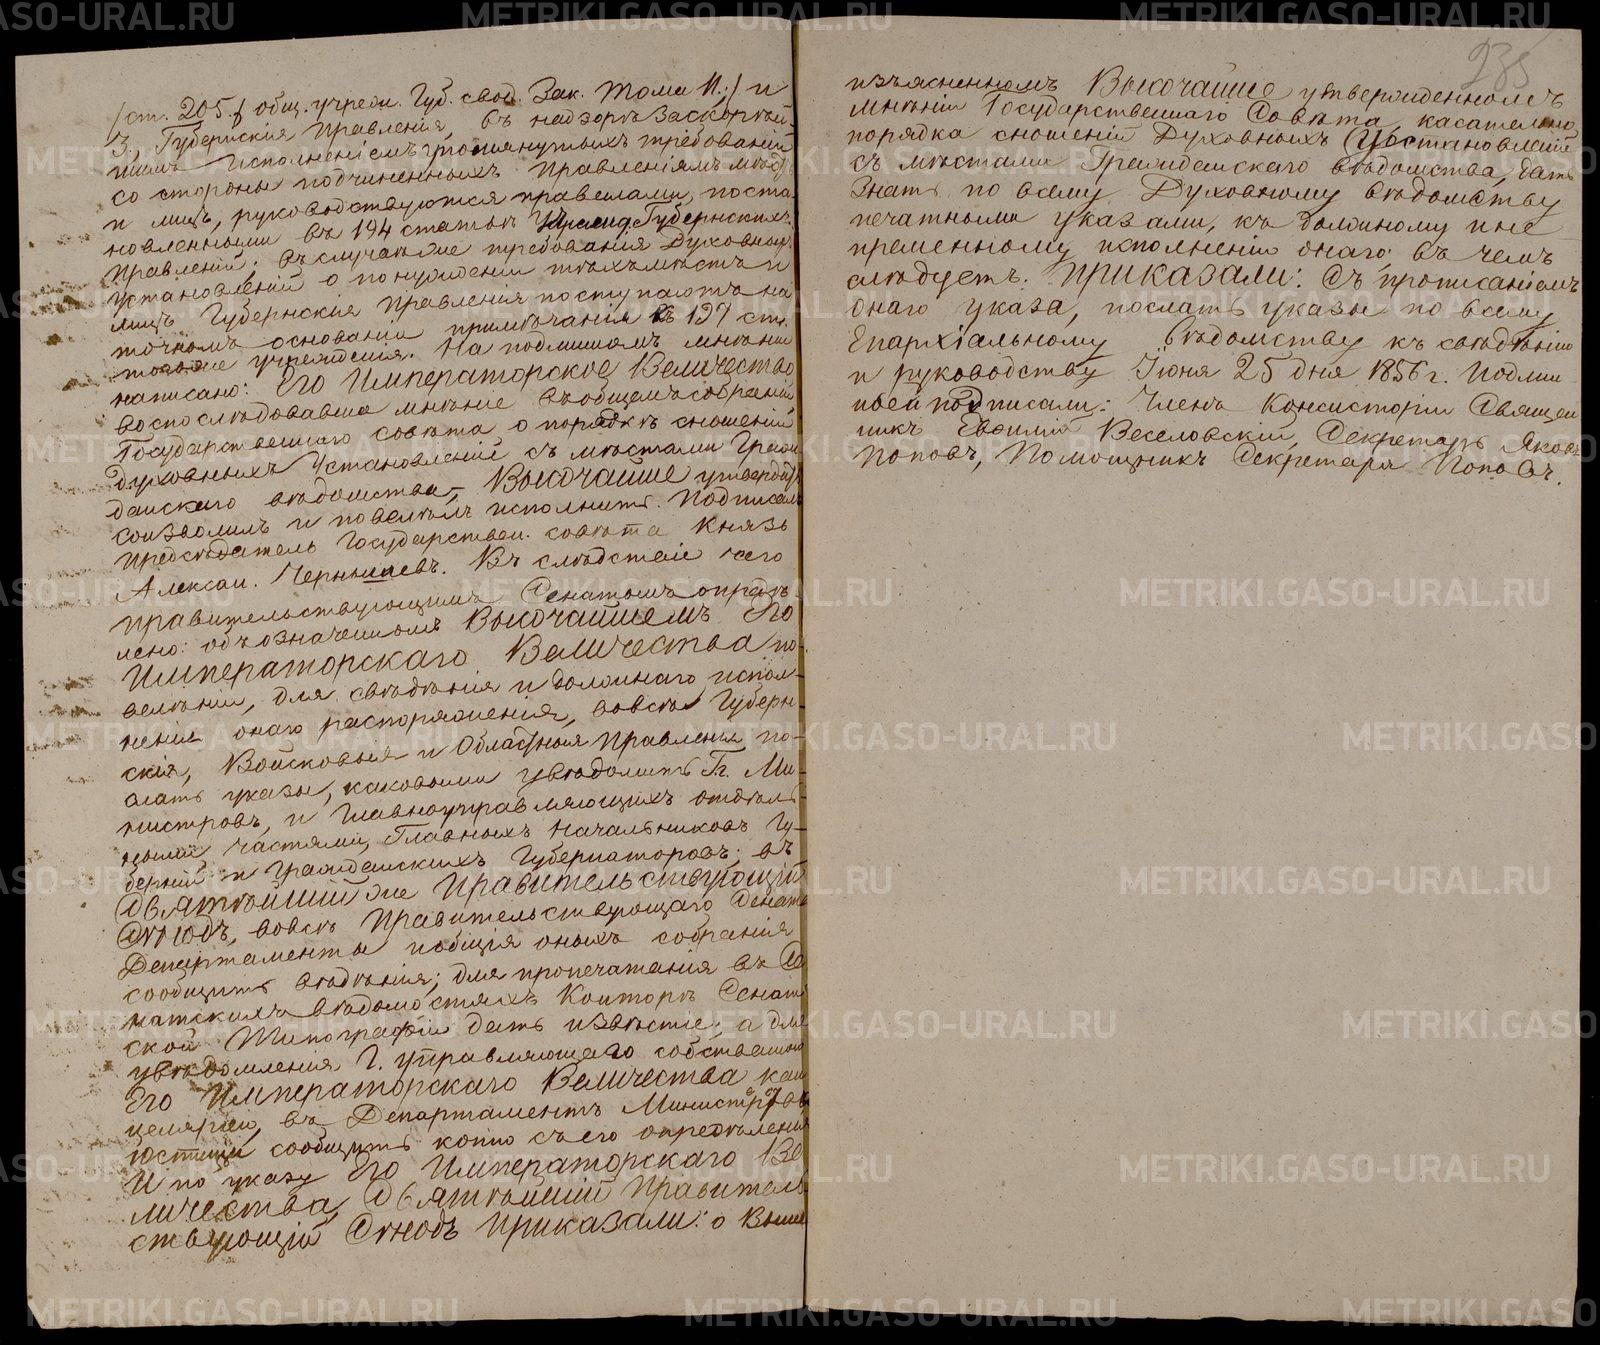 /ст. 205. общ. учрежд. Губ. свод. Зак. Тома II./ и
3, Губернскія Правленія, въ надзорѣ за скорѣй-
шимъ исполненіемъ упомянутыхъ требованій
со стороны подчиненныхъ Правленіямъ мѣстъ
и лицъ, руководствуются правилами, поста
новленными въ 194 статьѣ Учрежд. Губернскихъ
Правленій; въ случаѣ же требованія Духовныхъ
установленій о понужденіи тѣхъ мѣстъ и
лицъ Губернскія Правленія поступаютъ на
точномъ основаніи примѣчанія къ 197 ст.
того же учрежденія. На подлинномъ мнѣніи
написано: Его Императорское Величество
воспослѣдовавшее мнѣніе въ общемъ собраніи
Государственнаго совѣта о порядкѣ сношеній
Духовныхъ Установленій съ мѣстами Граж
данскаго вѣдомства, Высочайше утвердить
соизволилъ и повелѣлъ исполнить. Подписалъ
Предсѣдатель Государствен. совѣта Князь
Алексан. Чернышевъ. Въ слѣдствіе чего
Правительствующимъ Сенатомъ опредѣ
лено: объ означенномъ Высочайшемъ Его
Императорскаго Величества по-
велѣніи, для свѣдѣнія и должнаго испол-
ненія онаго распоряженія, во всѣ Губерн-
скія, Войсковыя и Областныя Правленія по-
слать указы, каковыми увѣдомить Гг. Ми-
нистровъ, и Главноуправляющихъ отдѣль-
ными частями, Главныхъ Начальниковъ Гу-
берній и Гражданскихъ Губернаторовъ; въ
Святѣйшій же Правительствующій
Сѵнодъ, во всѣ Правительствующаго Сената
Департаменты и общія оныхъ собранія
сообщить вѣдѣнія; для пропечатанія въ Се
натскихъ вѣдомостяхъ Конторѣ Сенат
ской Типографіи дать извѣстіе; а для
увѣдомленія Г. управляющаго собственною
Его Императорскаго Величества кан
целяріею, въ Департаментъ Министерства
юстиціи сообщить копію съ его опредѣленія
И по указу Его Императорскаго Ве
личества, Святѣйшій Правитель
ствующій Сѵнодъ Приказали: о выше
235
изъясненномъ Высочайше утвержденномъ
мнѣніи Государственнаго Совѣта, касательно
порядка сношеній Духовныхъ Установленій
съ мѣстами Гражданскаго вѣдомства, дать
знать по всему Духовному вѣдомству
печатными указами, къ должному и не
премѣнному исполненію онаго; въ чемъ
слѣдуетъ. Приказали: Съ прописаніемъ
онаго указа, послать указы по всему
Епархіальному вѣдомству къ свѣдѣнію
и руководству Іюня 25 дня 1856 г. Подлин
ной подписали: Членъ Консисторіи Священ
никъ Евѳимій Веселовскій, Секретарь Яковъ
Поповъ, Помощникъ Секретаря Поповъ.